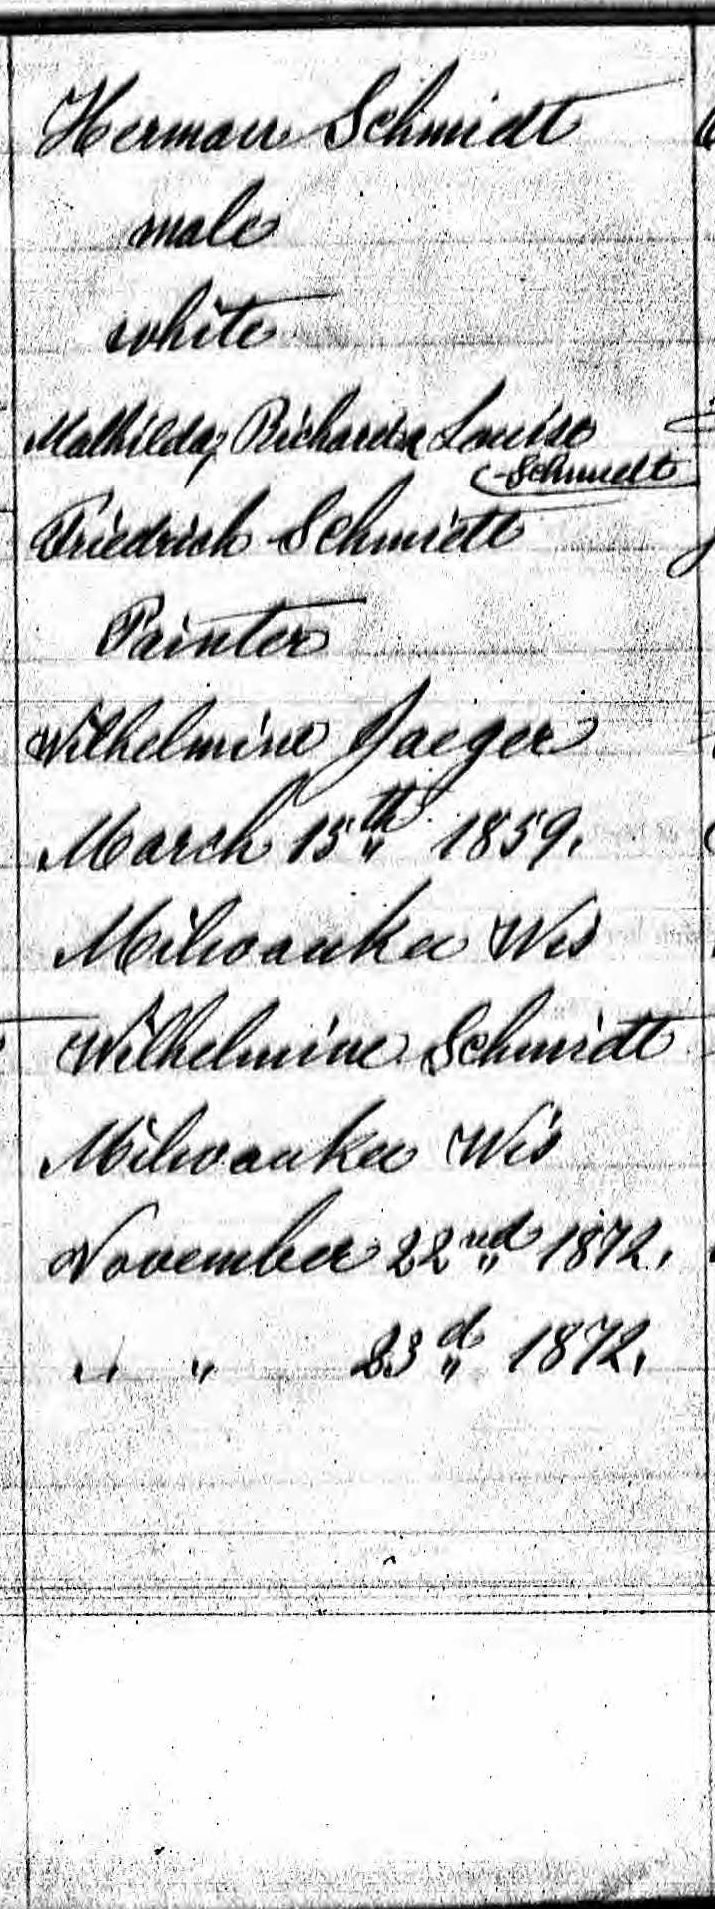 Herman Schmidt
male
white
Mathilda, Richard & Louise
Schmidt
Friedrich Schmidt
Painter
Wilhelmine Jaeger
March 15th 1859.
Milwaukee Wis
Wilhelmine Schmidt
Milwaukee Wis
November 22nd 1872.
" " 23d 1872.